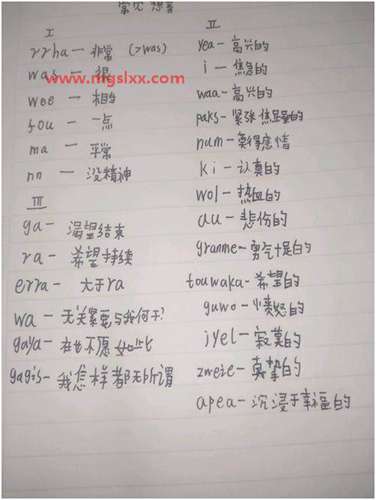 常见想音
I
rrha — 非常 (>was)
was — 很
www.mgslxx.com
wee — 相当
fou — 一点
ma — 平常
nn — 没精神
III
ga — 渴望结束
ra — 希望持续
erra — 大于ra
wa — 无关累要与我何干?
gaya — 在也不愿如此
gagis — 我怎样都无所谓
II
yea — 高兴的
i — 焦急的
waa — 高兴的
paks — 紧张焦虑的
num — 莫得感情
ki — 认真的
wol — 热血的
au — 悲伤的
granme — 勇气十足的
touwaka — 希望的
guwo — 愤怒的
jyel — 寂寞的
zweie — 真挚的
apea — 沉浸于幸福的